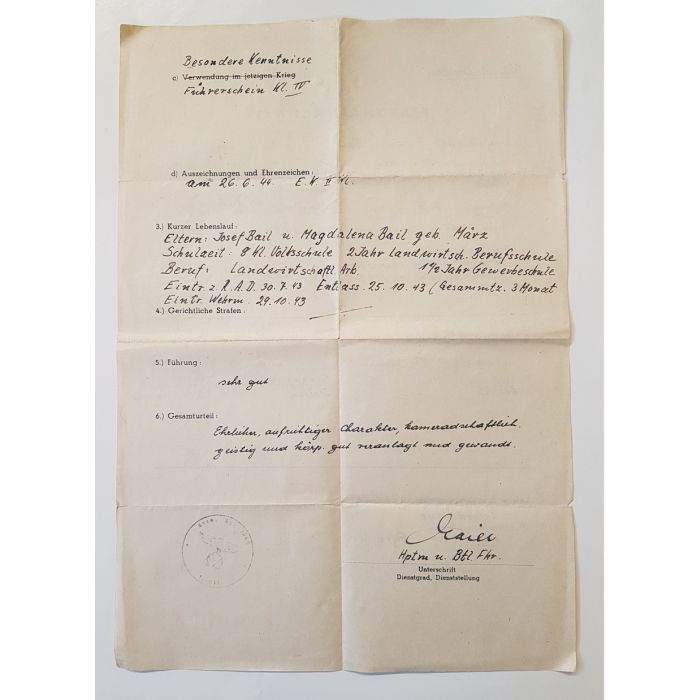 Besondere Kenntnisse
c) Verwendung im jetzigen Krieg
Führerschein Kl. IV
d) Auszeichnungen und Ehrenzeichen:
am 26.6.44. E.K. II Kl.
3.) Kurzer Lebenslauf:
Eltern: Josef Bail u. Magdalena Bail geb. März
Schulzeit: 8 Kl. Volksschule 2 Jahr landwirtsch. Berufsschule
Beruf: Landwirtschaftl. Arb. 1 1/2 Jahr Gewerbeschule
Eintr. z. R.A.D. 30.7.43 Entlass. 25.10.43 (Gesammtz. 3 Monat
Eintr. Wehrm. 29.10.43
4.) Gerichtliche Strafen:
5.) Führung:
sehr gut
6.) Gesamturteil:
Ehrlicher, aufrichtiger Charakter, kameradschaftlich.
geistig und körp. gut veranlagt und gewandt.
Maier
Hptm u. Btl. Fhr.
Unterschrift
Dienstgrad, Dienststellung